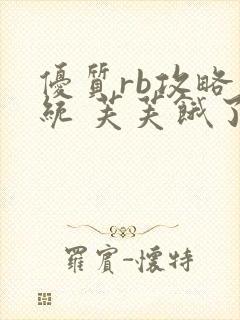 優質rb攻略
統 芙芙餓了
羅賓-懷特